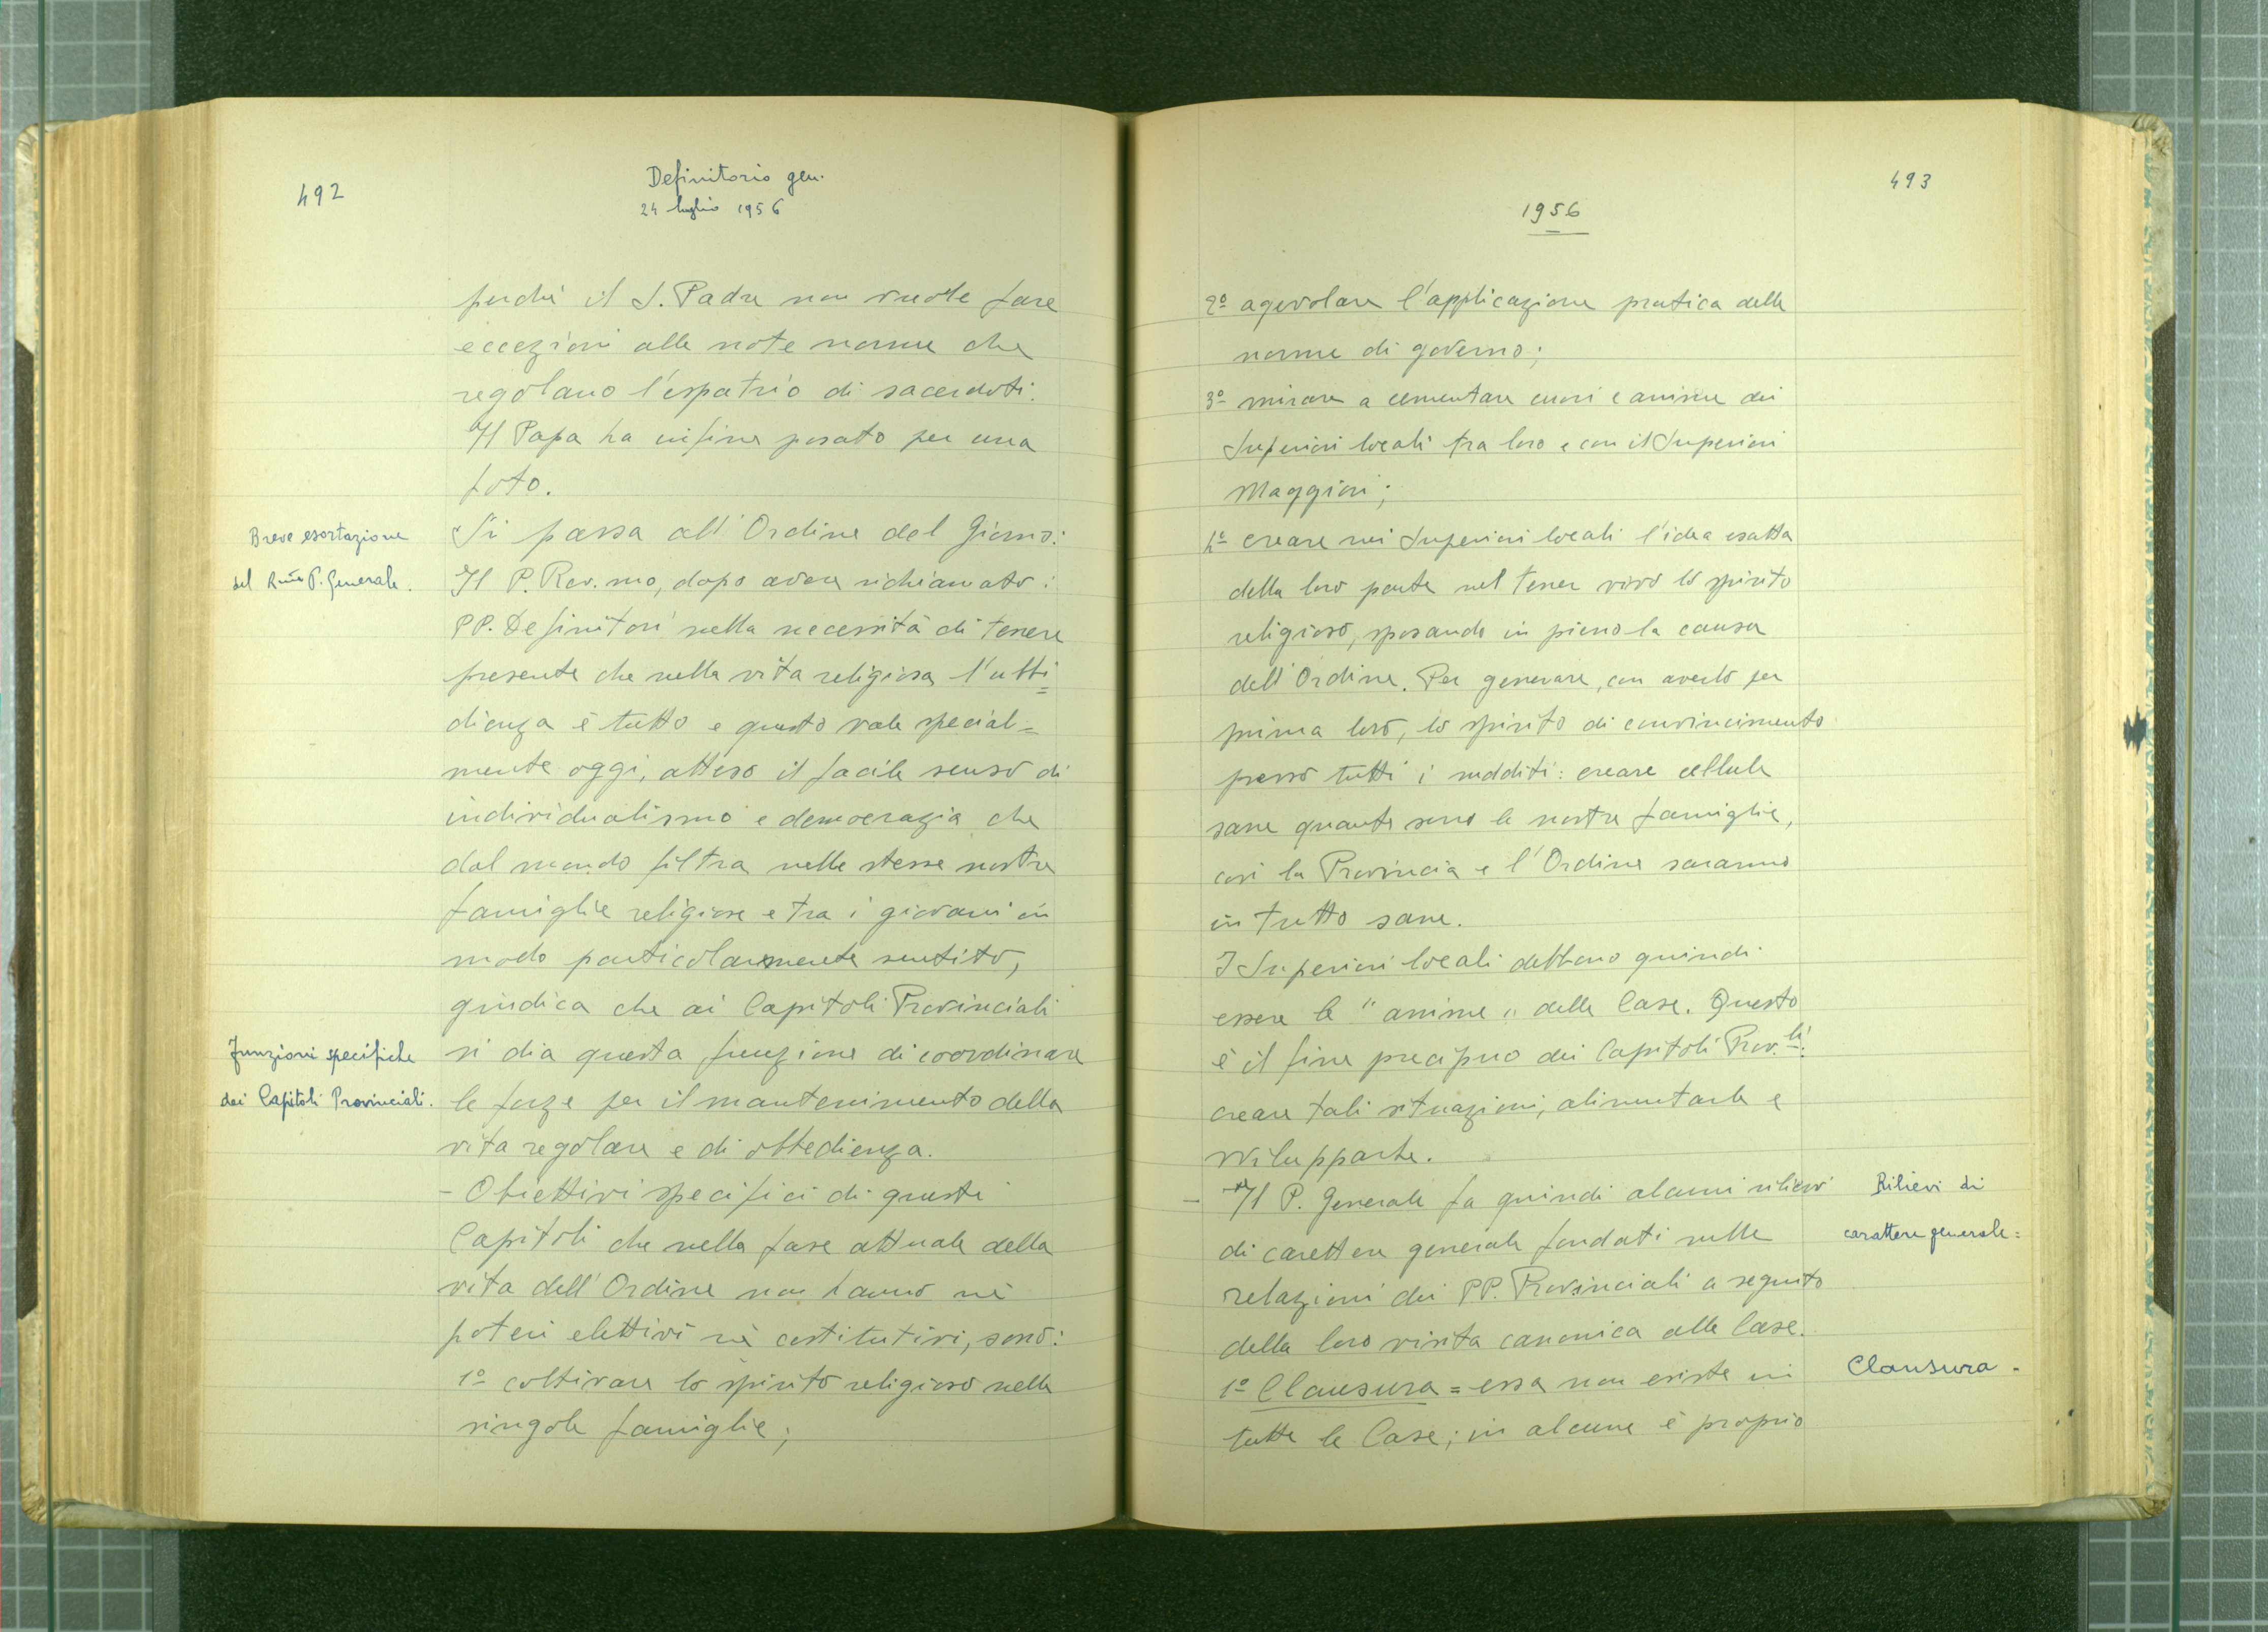 492
Definitorio gen.
24 luglio 1956
perchè il S. Padre non vuole fare
eccezioni alle note norme che
regolano l'espatrio di sacerdoti.
Il Papa ha infine posato per una
foto.
Breve esortazione
del R.mo P. Generale.
Si passa all'Ordine del Giorno:
Il P. Rev.mo, dopo avere richiamato i
PP. Definitori sulla necessità di tenere
presente che nella vita religiosa l'ubbi=
dienza è tutto e questo vale special=
mente oggi, atteso il facile senso di
individualismo e democrazia che
dal mondo filtra nelle stesse nostre
famiglie religiose e tra i giovani in
modo particolarmente sentito,
giudica che ai Capitoli Provinciali
Funzioni specifiche
dei Capitoli Provinciali.
si dia questa funzione di coordinare
le forze per il mantenimento della
vita regolare e di obbedienza.
- Obiettivi specifici di questi
Capitoli che nella fase attuale della
vita dell'Ordine non hanno nè
poteri elettivi nè costitutivi, sono:
1º coltivare lo spirito religioso nelle
singole famiglie;
493
1956
2º agevolare l'applicazione pratica delle
norme di governo;
3º mirare a cementare cuori e anime dei
Superiori locali tra loro e con il Superiori
Maggiori;
4º creare nei Superiori locali l'idea esatta
della loro parte nel tener vivo lo spirito
religioso, sposando in pieno la causa
dell'Ordine. Per generare, con averlo per
prima loro, lo spirito di convincimento
presso tutti i sudditi: creare cellule
sane quante sono le nostre famiglie,
così la Provincia e l'Ordine saranno
in tutto sane.
I Superiori locali debbono quindi
essere le "anime" delle Case. Questo
è il fine precipuo dei Capitoli Prov.li:
creare tali situazioni, alimentarle e
svilupparle.
- Il P. Generale fa quindi alcuni rilievi
Rilievi di
carattere generale=
di carettere generale fondati sulle
relazioni dei PP. Provinciali a seguito
della loro visita canonica alle Case.
Clausura -
1º Clausura = essa non esiste in
tutte le Case; in alcune è proprio